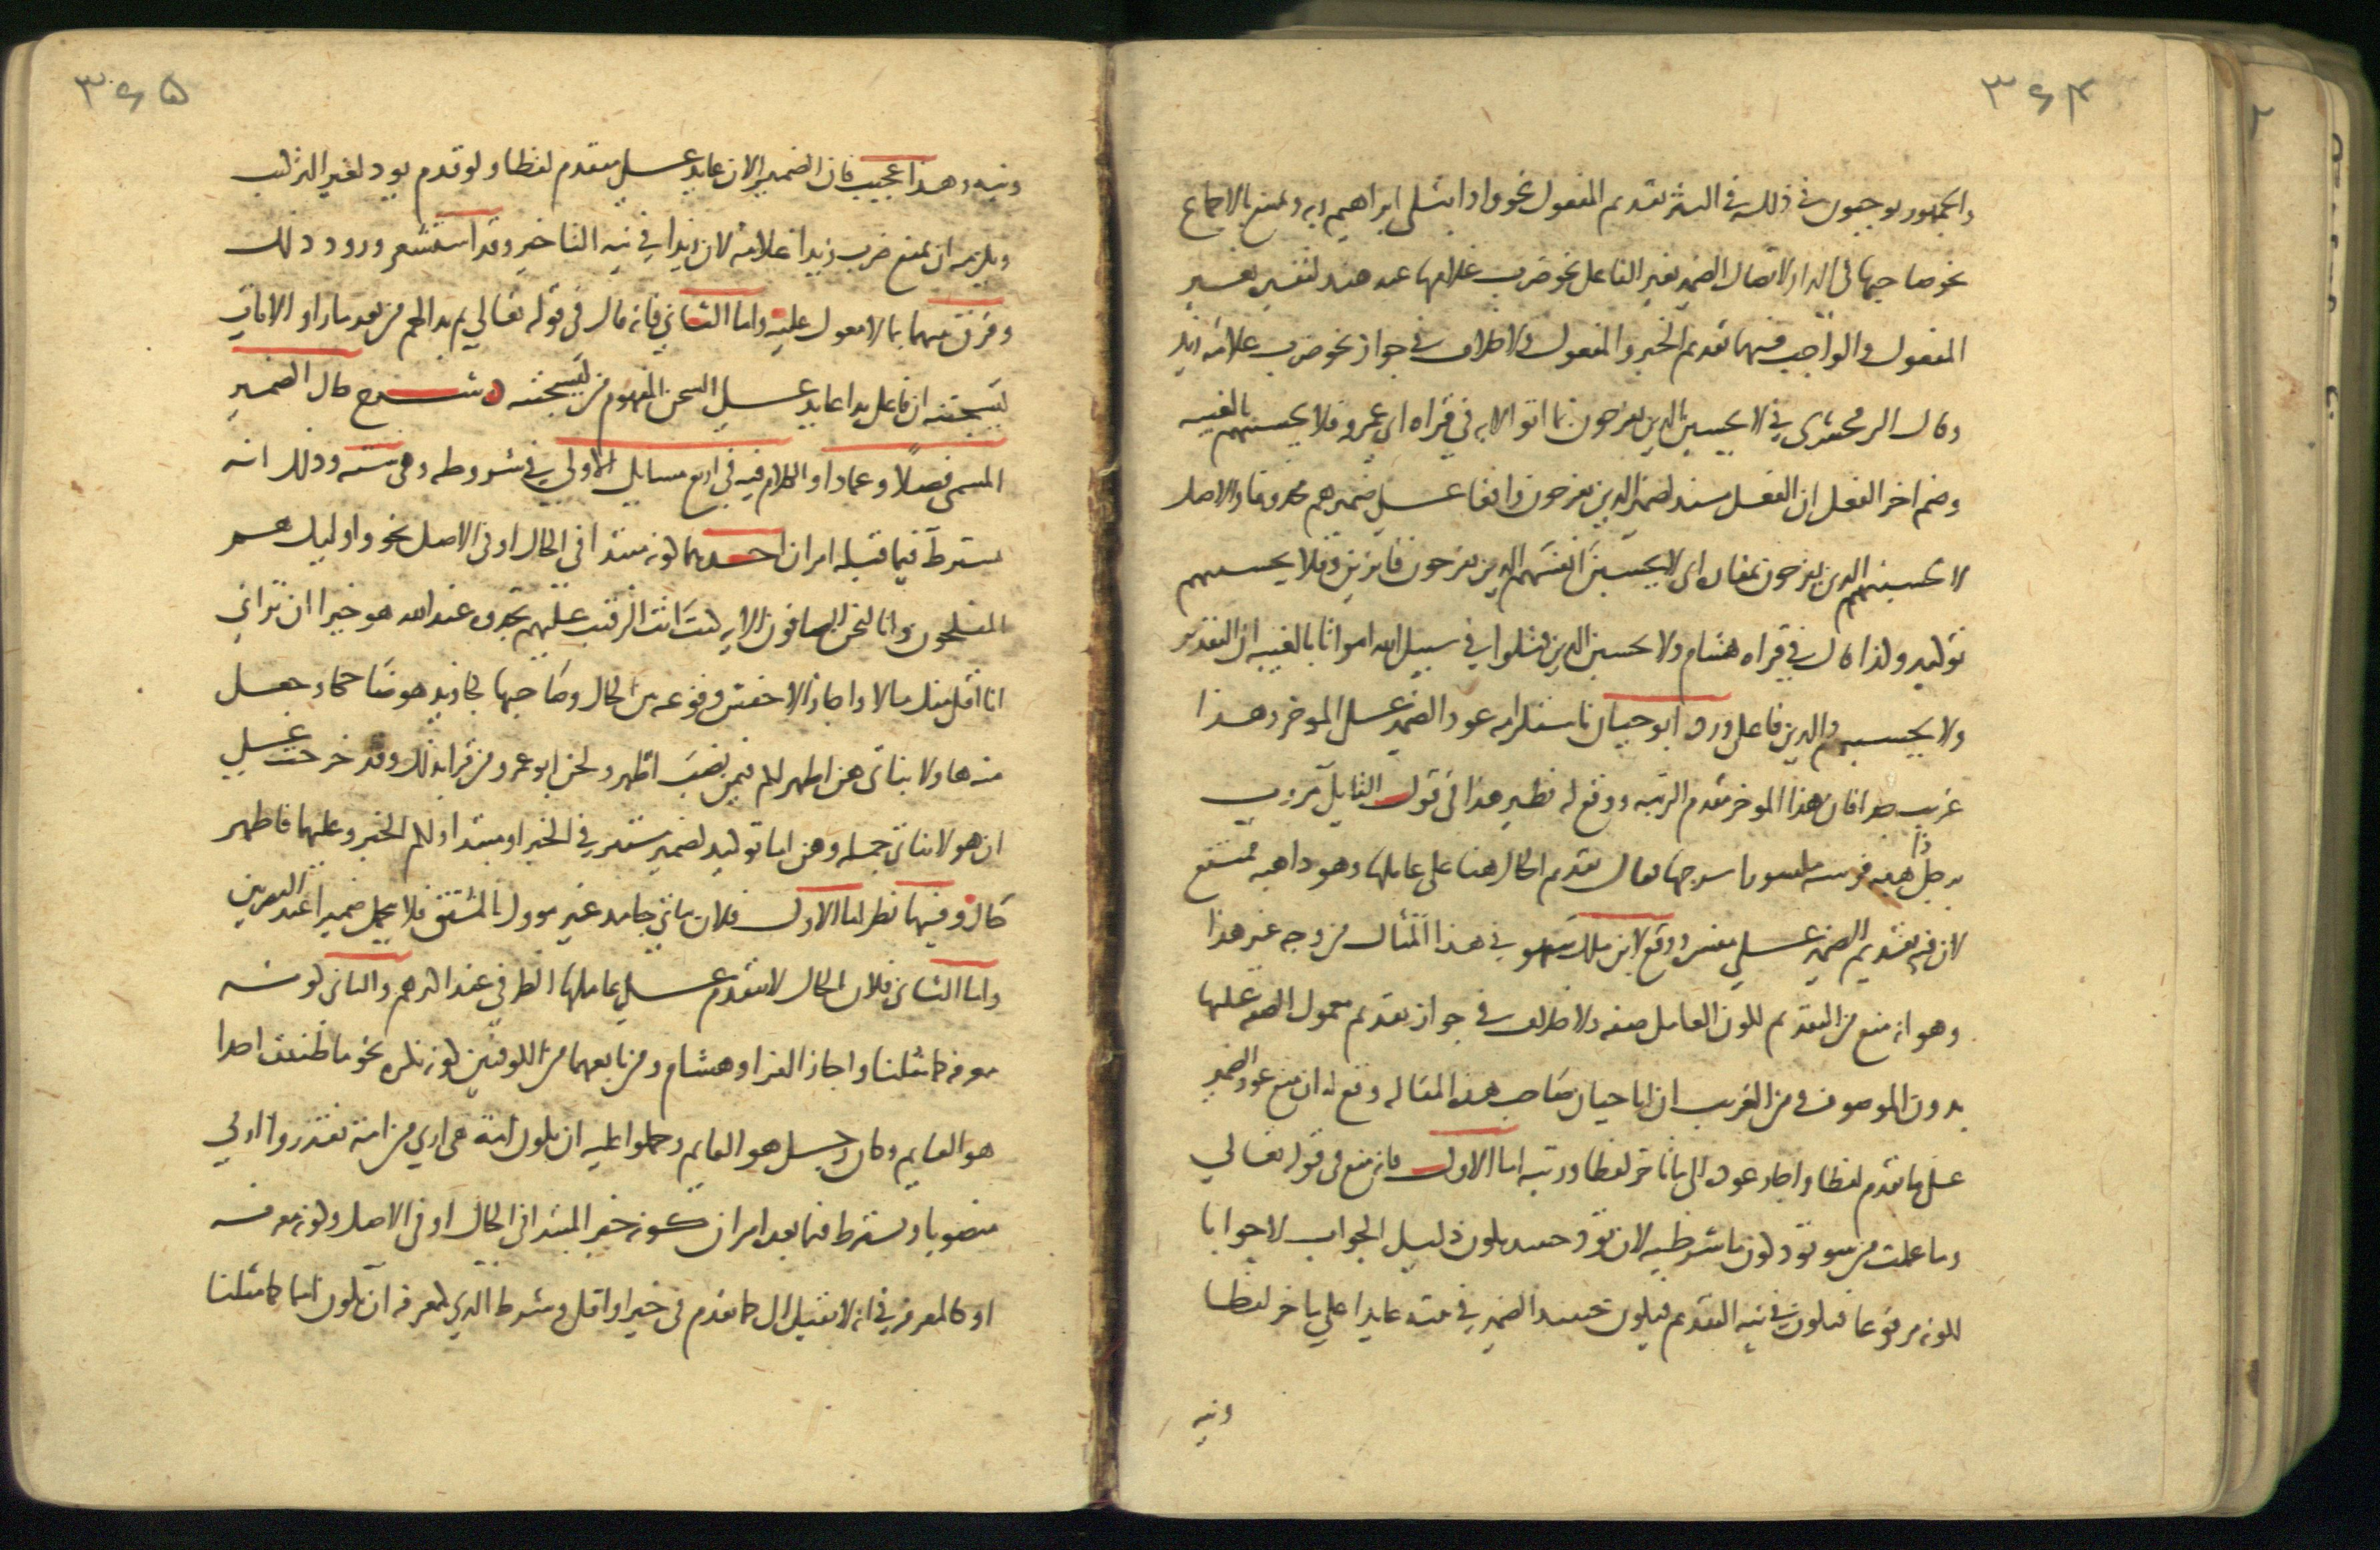 ٣٦٤
والجمهور يوجبون في ذلك في النثر تقديم المفعول نحو واذ ابتلى ابراهيم ربه ويمتنع بالاجماع
نحو صاحبها في الدار لاتصال الضمير بغير الفاعل نحو ضرب غلامها عبد هند لتفسير بغير
المفعول والواجب فيهما تقديم الخبر والمفعول ولا خلاف في جواز نحو ضرب غلامه زيد
وقال الزمخشري في لا يحسبن الذين يفرحون بما اتوا الايه في قراه ابي عمرو فلا يحسبنهم بالغيبه
وضم اخر الفعل ان الفعل مسند للذين يفرحون واقعا على ضميرهم محذوفا والاصل
لا يحسبنهم الذين يفرحون بمفازه اي لا يحسبن انفسهم الذين يفرحون فايزين وفلا يحسبنهم
توكيد وكذا قال في قراه هشام ولا يحسبن الذين قتلوا في سبيل الله امواتا بالغيبه ان التقدير
ولا يحسبنهم والذين فاعل ورده ابو حيان باستلزامه عود الضمير على المؤخر وهذا
غريب جدا فان هذا المؤخر مقدم الرتبه ووقع له نظير هذا في قول القايل مررت
برجل ذاهبه فرسه مكسورا سرجها فقال تقديم الحال هنا على عاملها وهو ذاهبه ممتنع
لان فيه تقديم الضمير على مفسره ووقع لابن ملك سهو في هذا المثال من وجه غير هذا
وهو انه منع من التقديم لكون العامل صفه ولا خلاف في جواز تقديم معمول الصفه عليها
بدون الموصوف ومن الغريب ان ابا حيان صاحب هذه المقاله وقع له ان منع عود الضمير
على ما تقدم لفظا واجاز عوده الى ما تاخر لفظا ورتبه اما الاول فانه منع في قوله تعالى
وما عملت من سو تود كون ما شرطيه لان تود حينيذ يكون دليل الجواب لا جوابا
لكونه مرفوعا فيكون في نيه التقديم فيكون حينيذ الضمير في بينه عايدا على ما اخر لفظا
ونيه
٣٦٥
ونيه وهذا عجيب فان الضمير الان عايد على متقدم لفظا ولو قدم تود لغير التركيب
ويلزمه ان يمنع ضرب زيدا غلامه لان زيدا في نيه التاخير وقد استشعر ورود ذلك
وفرق بينهما بما لا معول عليه واما الثاني فانه قال في قوله تعالى ثم بدا لهم من بعد ما راوا الايات
ليسجننه ان فاعل بدا عايد على السجن المفهوم من ليسجننه شرح حال الضمير
المسمى فصلا وعمادا والكلام فيه في اربع مسايل الاولى في شروطه وهي سته وذلك انه
يشترط فيما قبله امران احدهما كونه مبتدا في الحال او في الاصل نحو واوليك هم
المفلحون وانا لنحن الصافون الايه كنت انت الرقيب عليهم تجدوه عند الله هو خيرا ان تراني
انا اقل منك مالا واجاز الاخفش وقوعه بين الحال وصاحبها كجا زيد هو ضاحكا وجعل
منه هاولا بناتي هن اطهر لكم فيمن نصب اطهر ولحن ابو عمرو من قرا بذلك وقد خرجت على
ان هولا بناتي جمله وهن اما توكيد لضمير مستتر في الخبر او مبتدا ولكم الخبر وعليهما فاطهر
حال وفيهما نظر اما الاول فلان بناتي جامد غير مؤول بالمشتق فلا يحمل ضميرا عند البصريين
واما الثاني فلان الحال لا يتقدم على عاملها الظرفي عند اكثرهم والثاني كونه
معرفه كما مثلنا واجاز الفرا وهشام ومن تابعهما من الكوفيين كونه نكره نحو ما ظننت احدا
هو القايم وكان رجل هو القايم وحملوا عليه ان تكون امة هي اربى من امة فقدروا اربى
منصوبا ويشترط فيما بعده امران كونه خبر المبتدا في الحال او في الاصل وكونه معرفه
او كالمعرفه في انه لا يقبل ال كما تقدم في خيرا واقل وشرط الذي كالمعرفه ان يكون اسما كما مثلنا